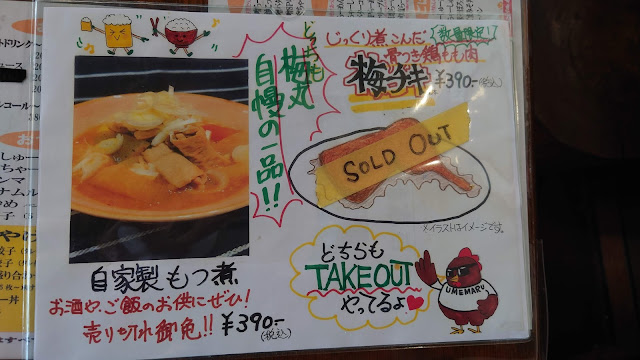 どちらも
梅丸
自慢の一品!!
じっくり煮こんだ
数量限定!
骨つき鶏もも肉
梅チキ
¥390-(税込)
SOLD OUT
※イラストはイメージです。
自家製もつ煮
お酒や、ご飯のお供にぜひ!
売り切れ御免!!
¥390-
(税込)
どちらも
TAKEOUT
やってるよ
UMEMARU
ドリンク
アルコール〜
ナムル